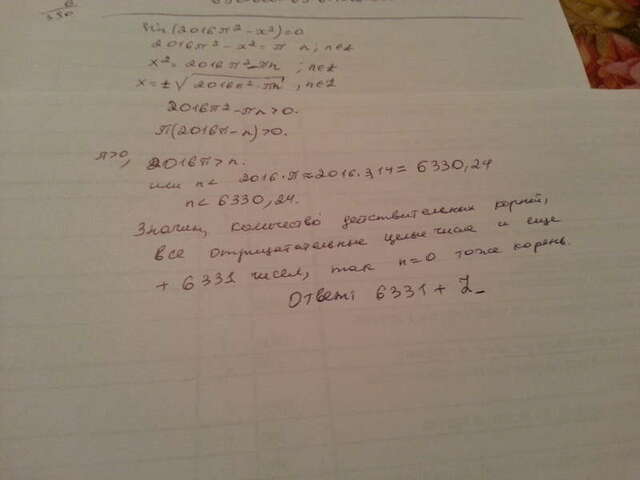 6
350
sin(2016π² - x²) = 0
2016π² - x² = π n; n∈Z
x² = 2016π² - πn ; n∈Z
x = ± √2016π² - πn , n∈Z
2016π² - πn > 0.
π(2016π - n) > 0.
π>0, 2016π > n.
или n < 2016·π ≈ 2016·3,14 = 6330,24
n < 6330,24.
Значит, количество действительных корней,
все отрицательные целые числа и еще
+ 6331 чисел, так n=0 тоже корень.
Ответ: 6331 + Z_